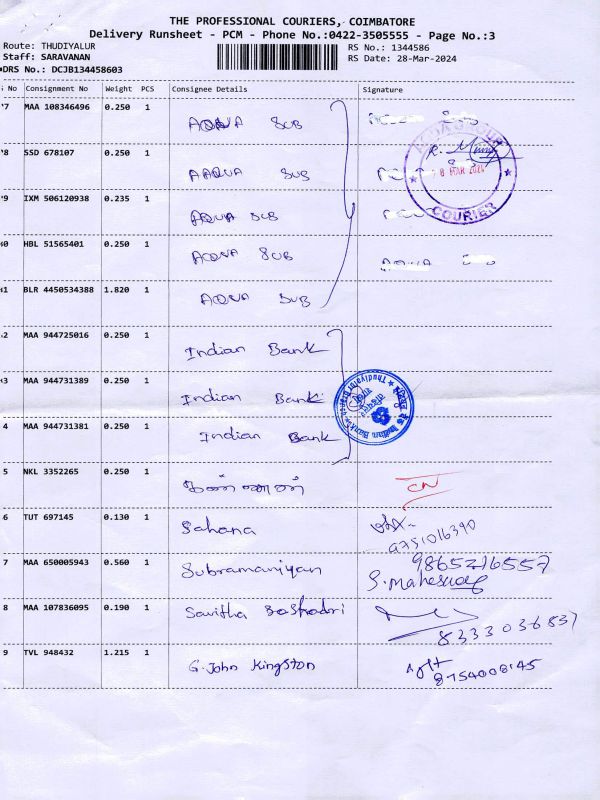 THE PROFESSIONAL COURIERS, COIMBATORE
Delivery Runsheet - PCM - Phone No.:0422-3505555 - Page No.:3
Route: THUDIYALUR RS No.: 1344586
Staff: SARAVANAN RS Date: 28-Mar-2024
DRS No.: DCJB134458603
No Consignment No Weight PCS Consignee Details Signature
7 MAA 108346496 0.250 1 AQUA SUB
8 SSD 678107 0.250 1 AAQUA SUB
9 IXM 506120938 0.235 1 AQUA SUB
0 HBL 51565401 0.250 1 AQUA SUB AQUA
1 BLR 4450534388 1.820 1 AQUA SUB
COURIER
2 MAA 944725016 0.250 1 Indian Bank
3 MAA 944731389 0.250 1 Indian Bank
4 MAA 944731381 0.250 1 Indian Bank
Indian Bank
5 NKL 3352265 0.250 1 கண்ணன் CN
6 TUT 697145 0.130 1 Sahana
9751016390
7 MAA 650005943 0.560 1 Subramaniyan 9865216557
8 MAA 107836095 0.190 1 Savitha
8333036837
9 TVL 948432 1.215 1 G. John Kingston
8754008145